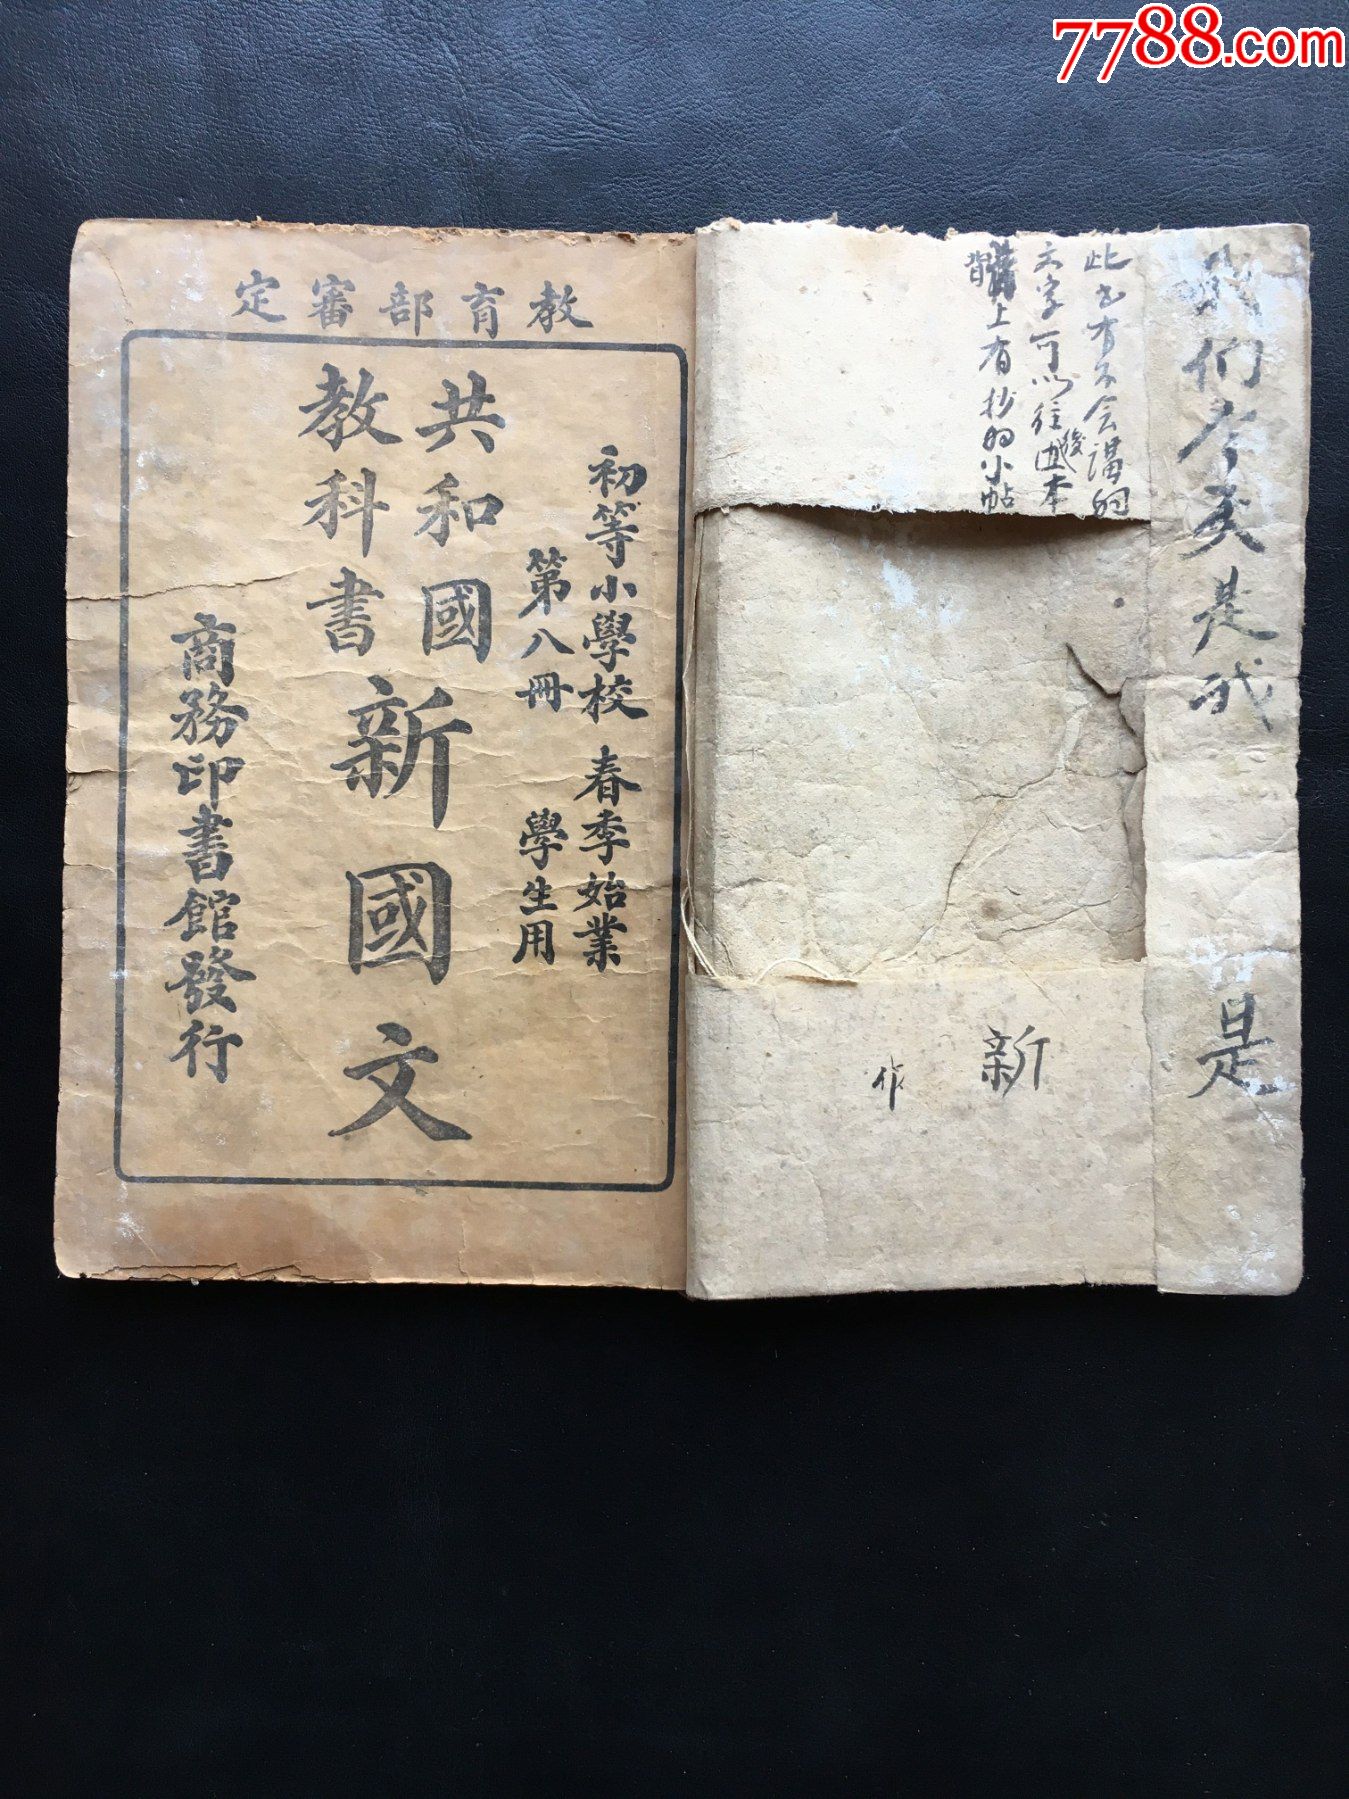 7788.com
教育部審定
初等小學校 春季始業
第八冊 學生用
共和國
教科書
新國文
商務印書館發行
我们今天是我
是
此书有不会講的
文字可以往後
本
背
上有抄的小帖
新
作